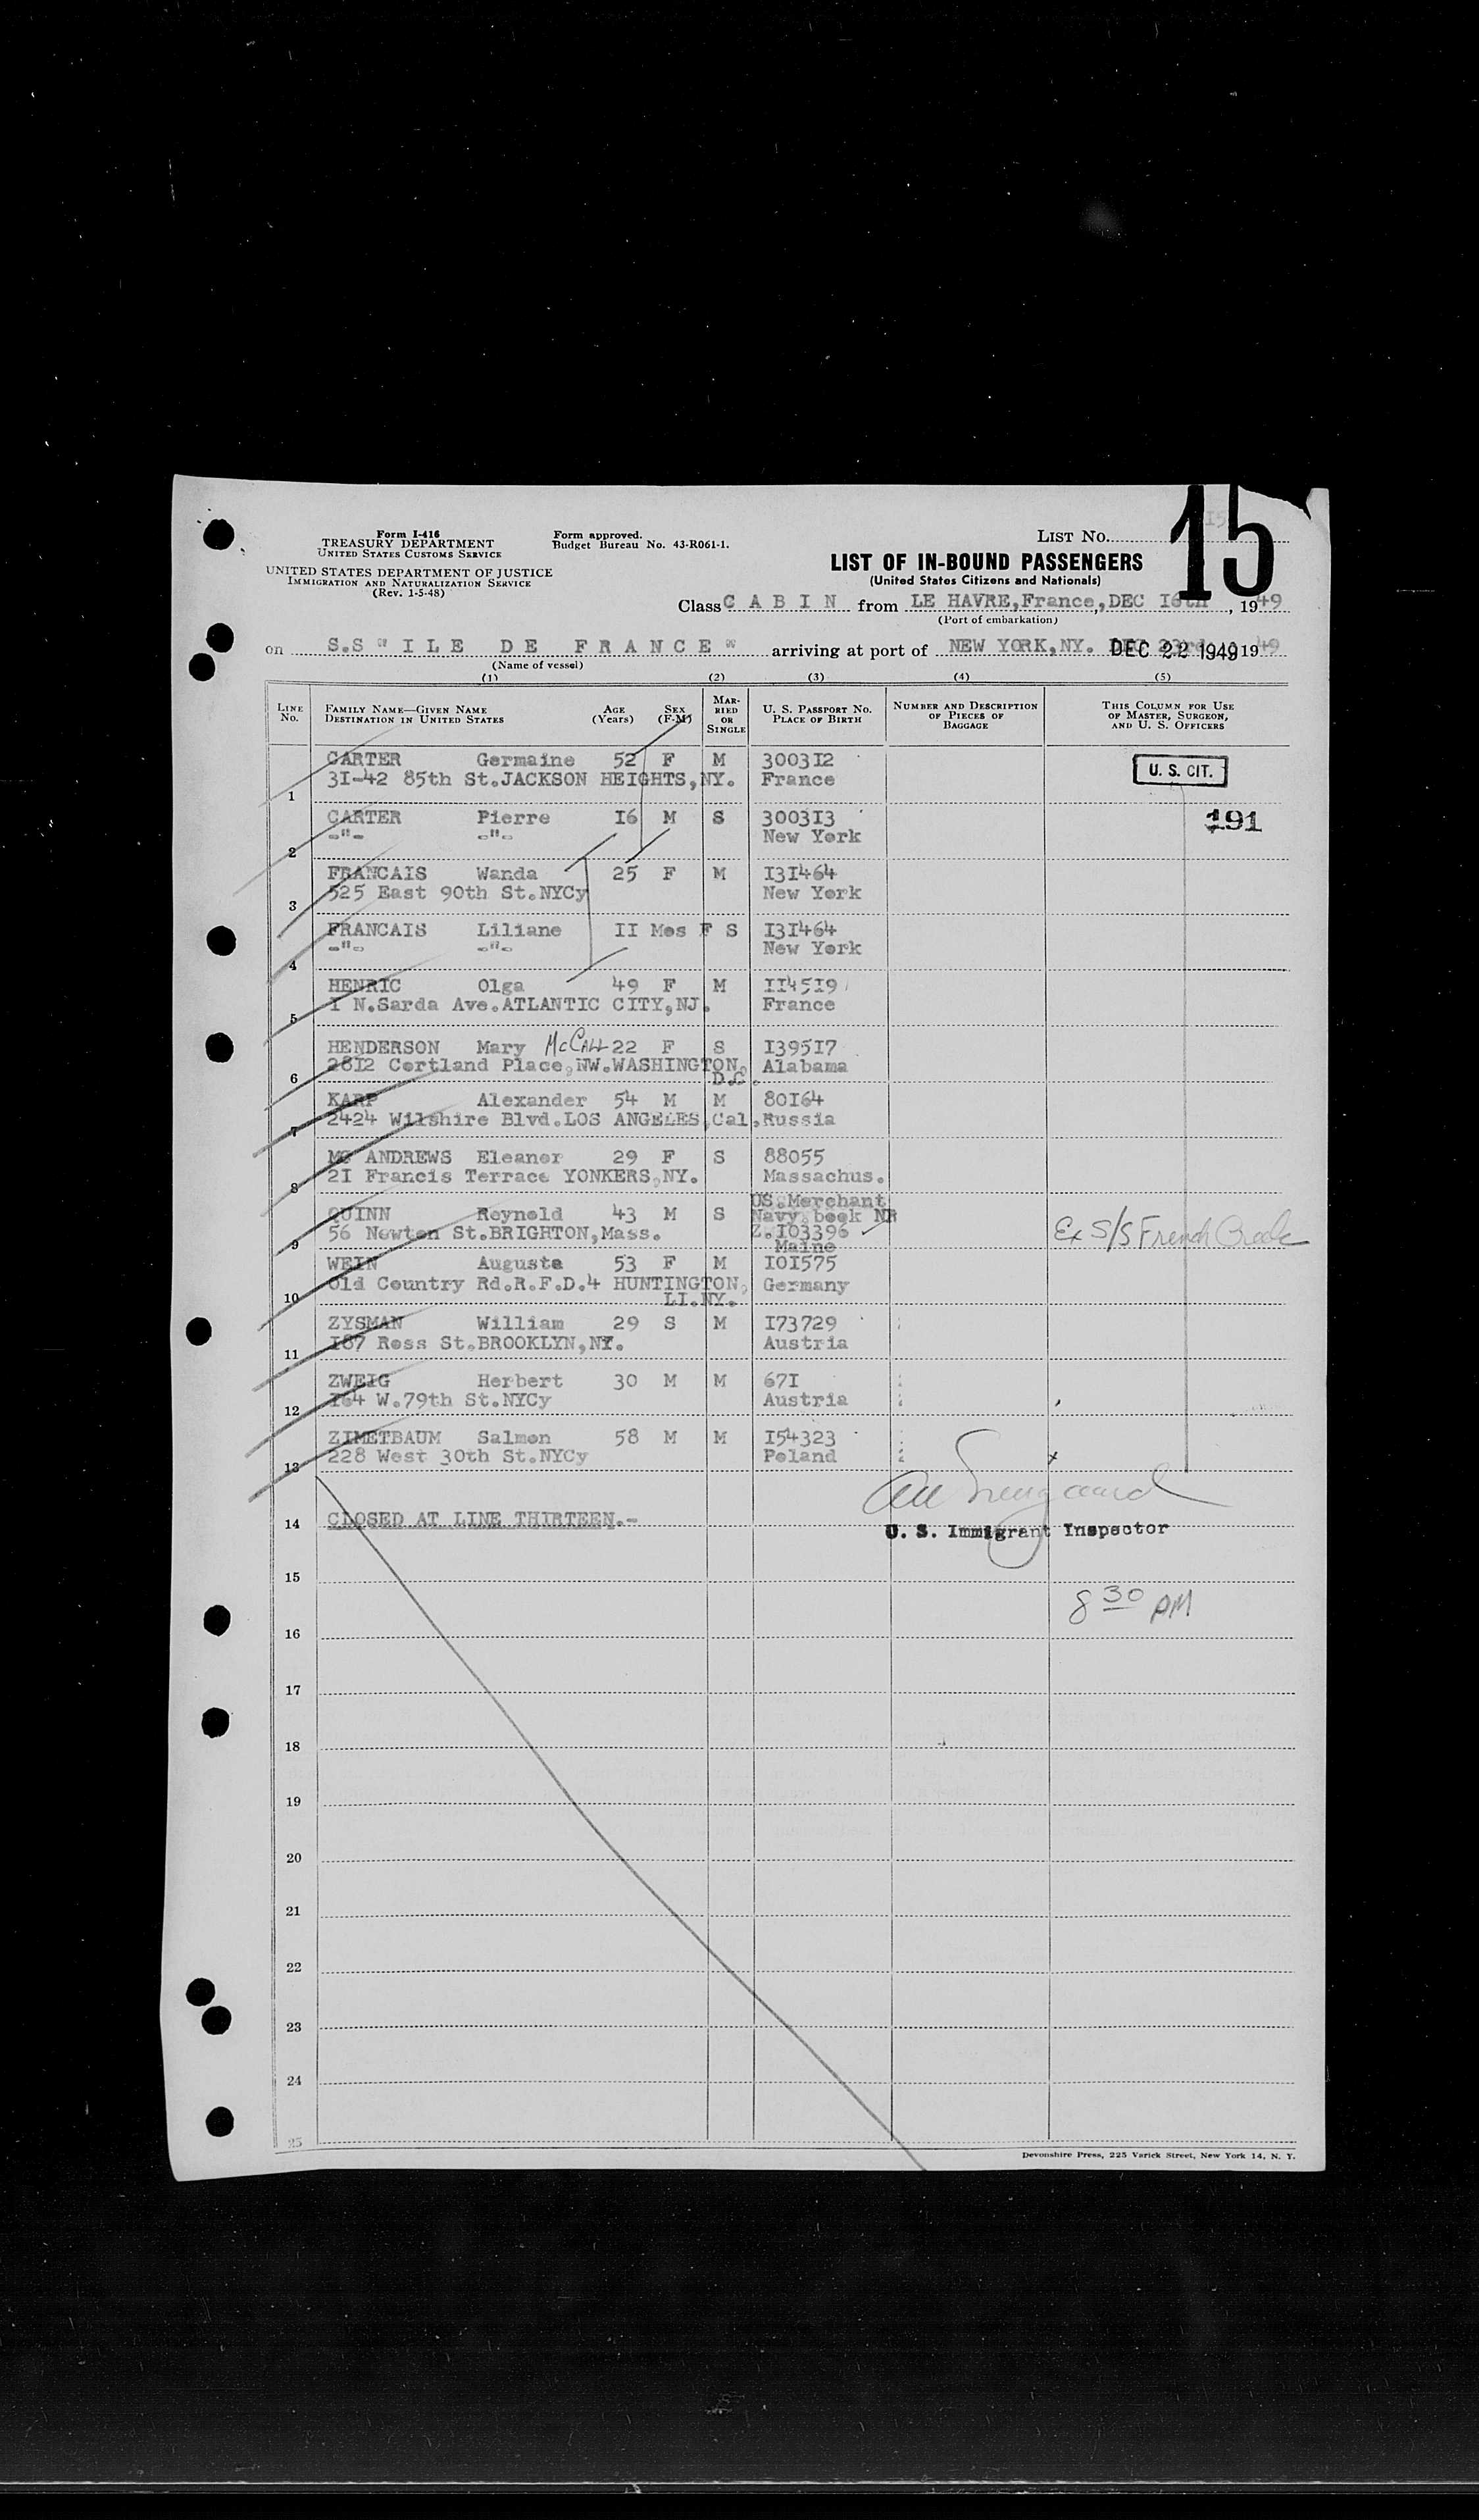 Form I-416
TREASURY DEPARTMENT
UNITED STATES CUSTOMS SERVICE
UNITED STATES DEPARTMENT OF JUSTICE
IMMIGRATION AND NATURALIZATION SERVICE
(Rev. 1-5-48)
Form approved.
Budget Bureau No. 43-R061-1.
LIST No. 15
LIST OF IN-BOUND PASSENGERS
(United States Citizens and Nationals)
Class C A B I N from LE HAVRE,France,,DEC I6th, 1949
(Port of embarkation)
on S.S " ILE DE FRANCE " arriving at port of NEW YORK,NY. DEC 22 1949 1949
(Name of vessel)
(1) (2) (3) (4) (5)
LINE No. FAMILY NAME—GIVEN NAME DESTINATION IN UNITED STATES AGE (Years) SEX (F-M) MARRIED OR SINGLE U. S. PASSPORT No. PLACE OF BIRTH NUMBER AND DESCRIPTION OF PIECES OF BAGGAGE THIS COLUMN FOR USE OF MASTER, SURGEON, AND U. S. OFFICERS
CARTER Germaine 52 F M 3003I2 U. S. CIT.
1 3I-42 85th St.JACKSON HEIGHTS,NY. France
CARTER Pierre I6 M S 3003I3 191
2 -"- -"- New York
FRANCAIS Wanda 25 F M I3I464
3 525 East 90th St.NYCy New York
FRANCAIS Liliane II Mos F S I3I464
4 -"- -"- New York
HENRIC Olga 49 F M II45I9
5 I N.Sarda Ave.ATLANTIC CITY,NJ. France
HENDERSON Mary McCall 22 F S I395I7
6 28I2 Cortland Place,NW.WASHINGTON, D.C. Alabama
KARP Alexander 54 M M 80I64
7 2424 Wilshire Blvd.LOS ANGELES,Cal. Russia
MC ANDREWS Eleanor 29 F S 88055
8 2I Francis Terrace YONKERS,NY. Massachus.
QUINN Reynold 43 M S US.Merchant Navy book NR
9 56 Newton St.BRIGHTON,Mass. Z.I03396 Maine Ex S/S French Creek
WEIN Augusta 53 F M I0I575
10 Old Country Rd.R.F.D.4 HUNTINGTON, LI.NY. Germany
ZYSMAN William 29 S M I73729
11 I87 Ross St.BROOKLYN,NY. Austria
ZWEIG Herbert 30 M M 67I
12 I64 W.79th St.NYCy Austria
ZIMETBAUM Salmon 58 M M I54323
13 228 West 30th St.NYCy Poland
14 CLOSED AT LINE THIRTEEN.-
U. S. Immigrant Inspector
15
8 30 PM
16
17
18
19
20
21
22
23
24
25
Devonshire Press, 225 Varick Street, New York 14, N. Y.